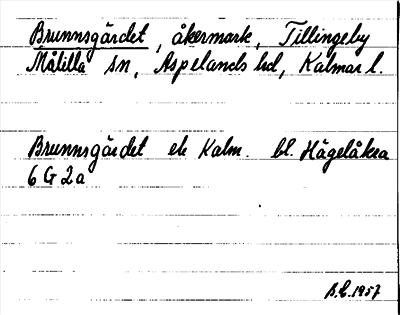 Brunnsgärdet, åkermark, Tillingeby
Målilla sn, Aspelands hd, Kalmar l.
Brunnsgärdet ek Kalm. bl. Hägelåkra
6 G 2 a
B.L. 1957